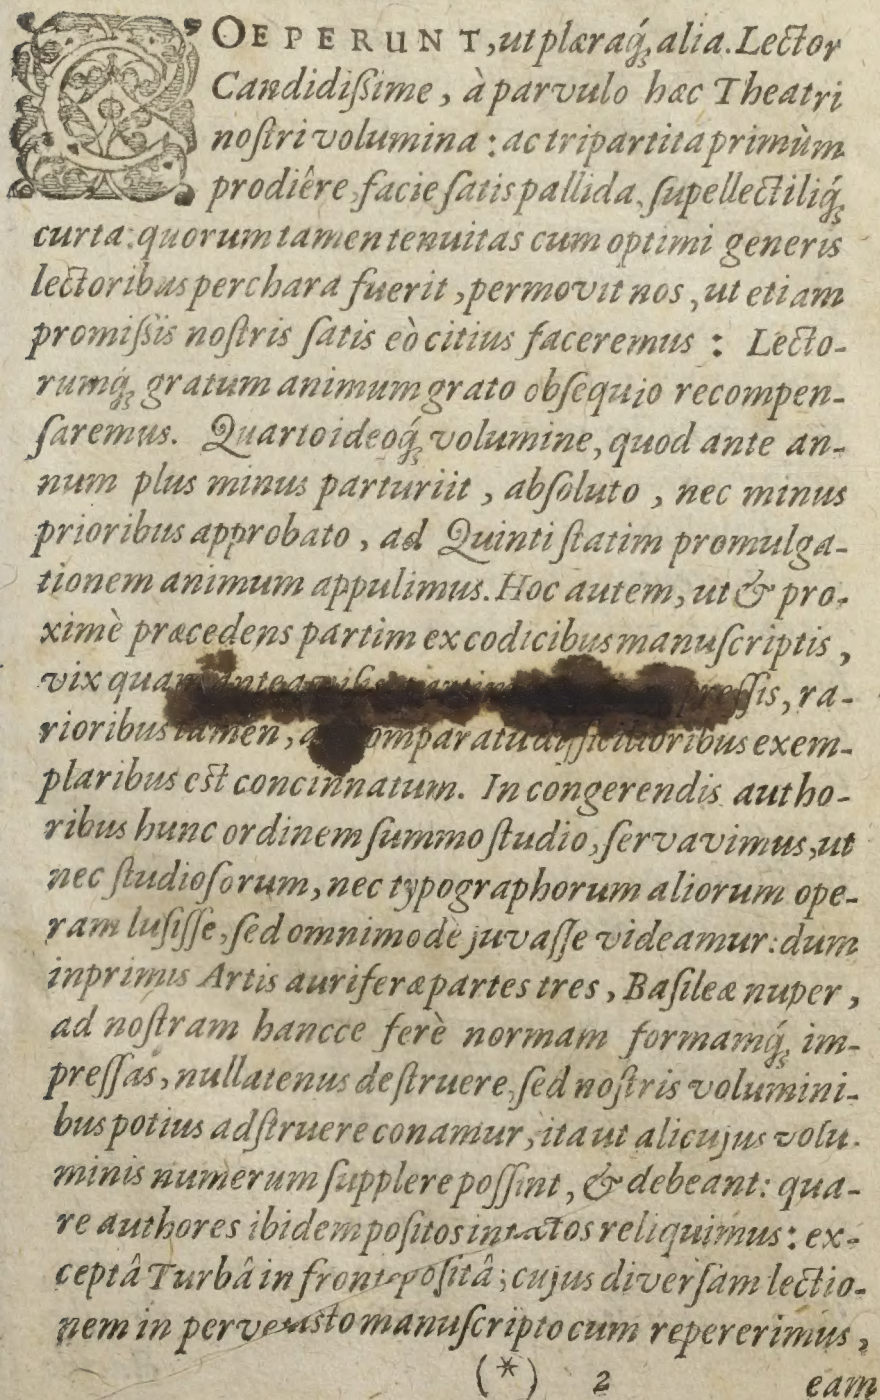 COEPERUNT, ut plæraq́ꝫ alia. Lector
Candidiſsime, à parvulo hæc Theatri
noſtri volumina : ac tripartita primùm
prodiêre, facie ſatis pallida, ſupellectiliq́ꝫ
curta: quorum tamen tenuitas cum optimi generis
lectoribus perchara fuerit, permovit nos, ut etiam
promiſsis noſtris ſatis eò citius faceremus : Lecto-
rumq́ꝫ gratum animum grato obſequio recompen-
ſaremus. Quarto ideoq́ꝫ volumine, quod ante an-
num plus minus parturiit, abſoluto, nec minus
prioribus approbato, ad Quinti ſtatim promulga-
tionem animum appulimus. Hoc autem, ut & pro-
ximè præcedens partim ex codicibus manuſcriptis,
vix quam preſſis, ra-
rioribus tamen, comparatu difficilioribus exem-
plaribus eſt concinnatum. In congerendis autho-
ribus hunc ordinem ſummo ſtudio, ſervavimus, ut
nec ſtudioſorum, nec typographorum aliorum ope-
ram luſiſſe, ſed omnimodè juvaſſe videamur: dum
inprimis Artis auriferæ partes tres, Baſileæ nuper,
ad noſtram hancce ferè normam formamq́ꝫ im-
preſſas, nullatenus deſtruere, ſed noſtris volumini-
bus potius adſtruere conamur, ita ut alicujus volu-
minis numerum ſupplere poſſint, & debeant: qua-
re authores ibidem poſitos intactos reliquimus: ex-
ceptâ Turbâ in fronte poſitâ; cujus diverſam lectio-
nem in pervetusto manuſcripto cum repererimus,
(*) 2 eam